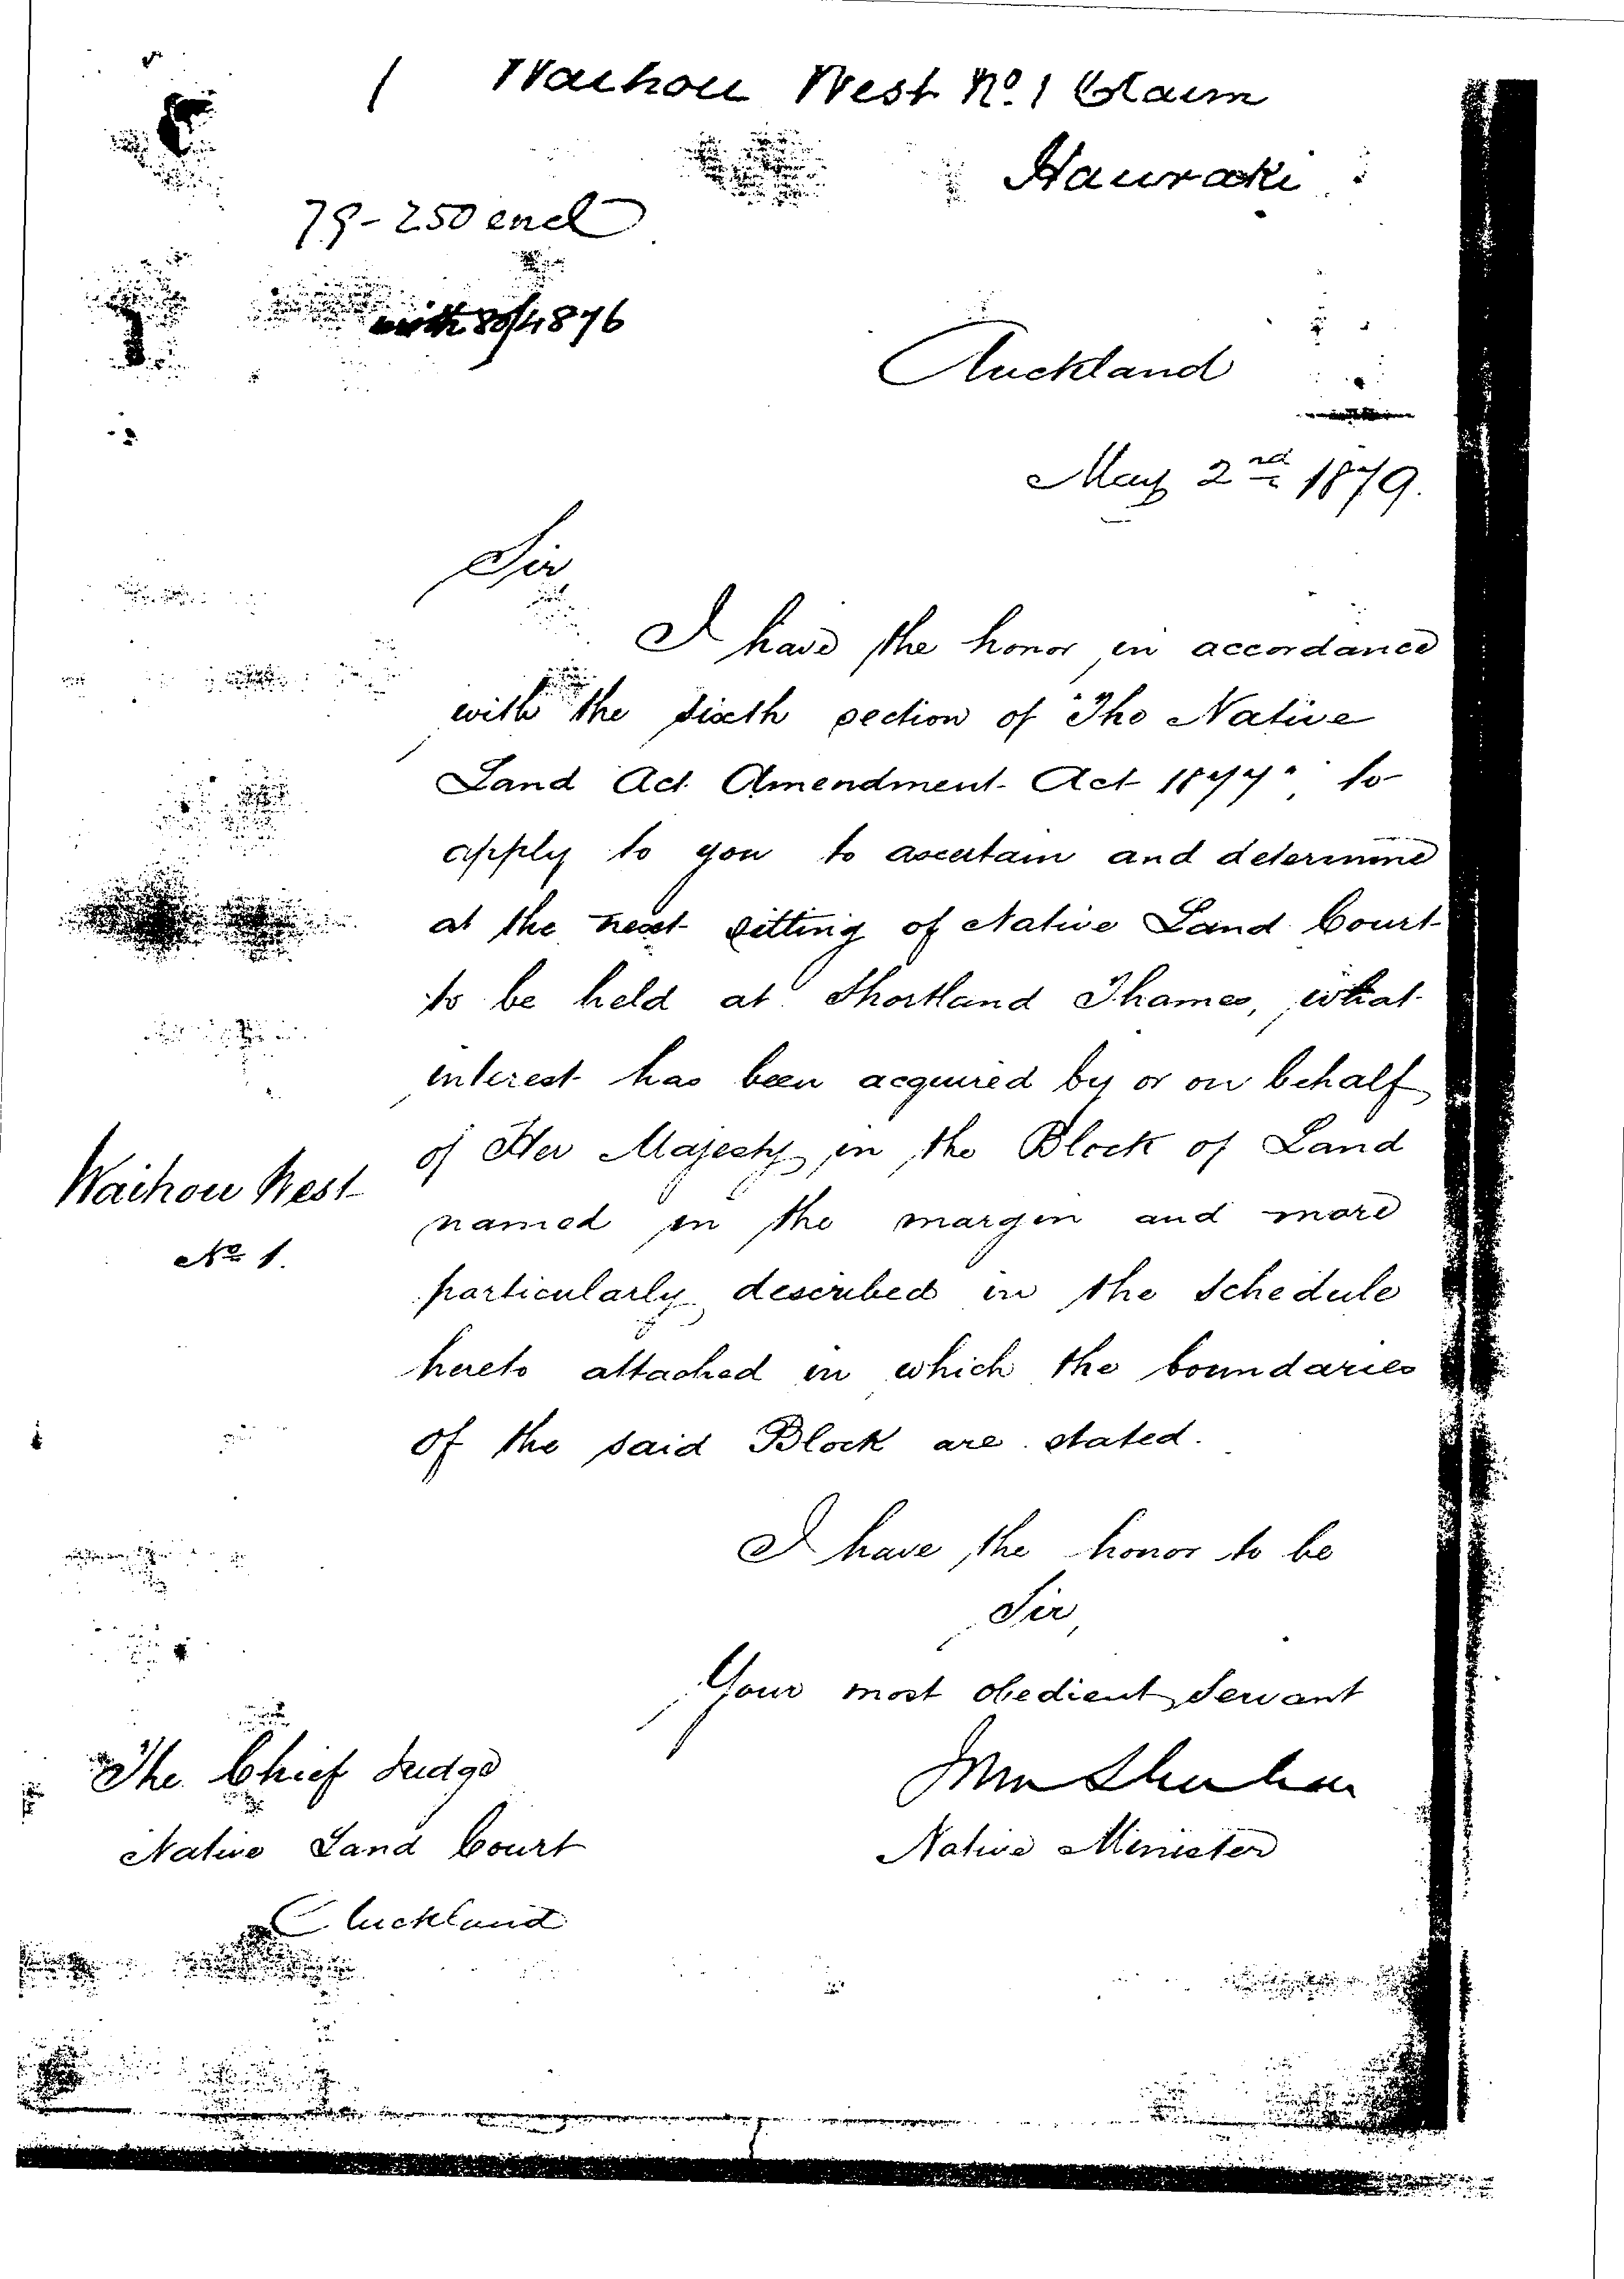 1 Waihou West No. 1 Claim
Hauraki
79-250 encl
with 80/4876
Auckland
May 2nd 1879.
Sir,
I have the honor in accordance
with the sixth section of "The Native
Land Act Amendment Act 1877", to
apply to you to ascertain and determine
at the next sitting of Native Land Court
to be held at Shortland Thames, what
interest has been acquired by or on behalf
of Her Majesty in the Block of Land
Waihou West
No 1.
named in the margin and more
particularly described in the Schedule
hereto attached in which the boundaries
of the said Block are stated.
I have the honor to be
Sir,
Your most obedient Servant
John Sheehan
Native Minister
The Chief Judge
Native Land Court
Auckland